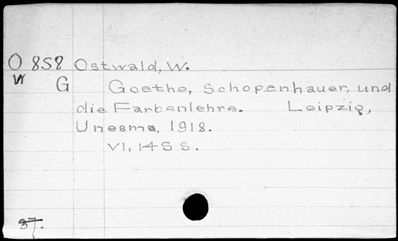 O 858 Ostwald, W.
W G Goethe, Schopenhauer, und
die Farbenlehre. Leipzig,
Unesma, 1918.
VI, 145 S.
37.